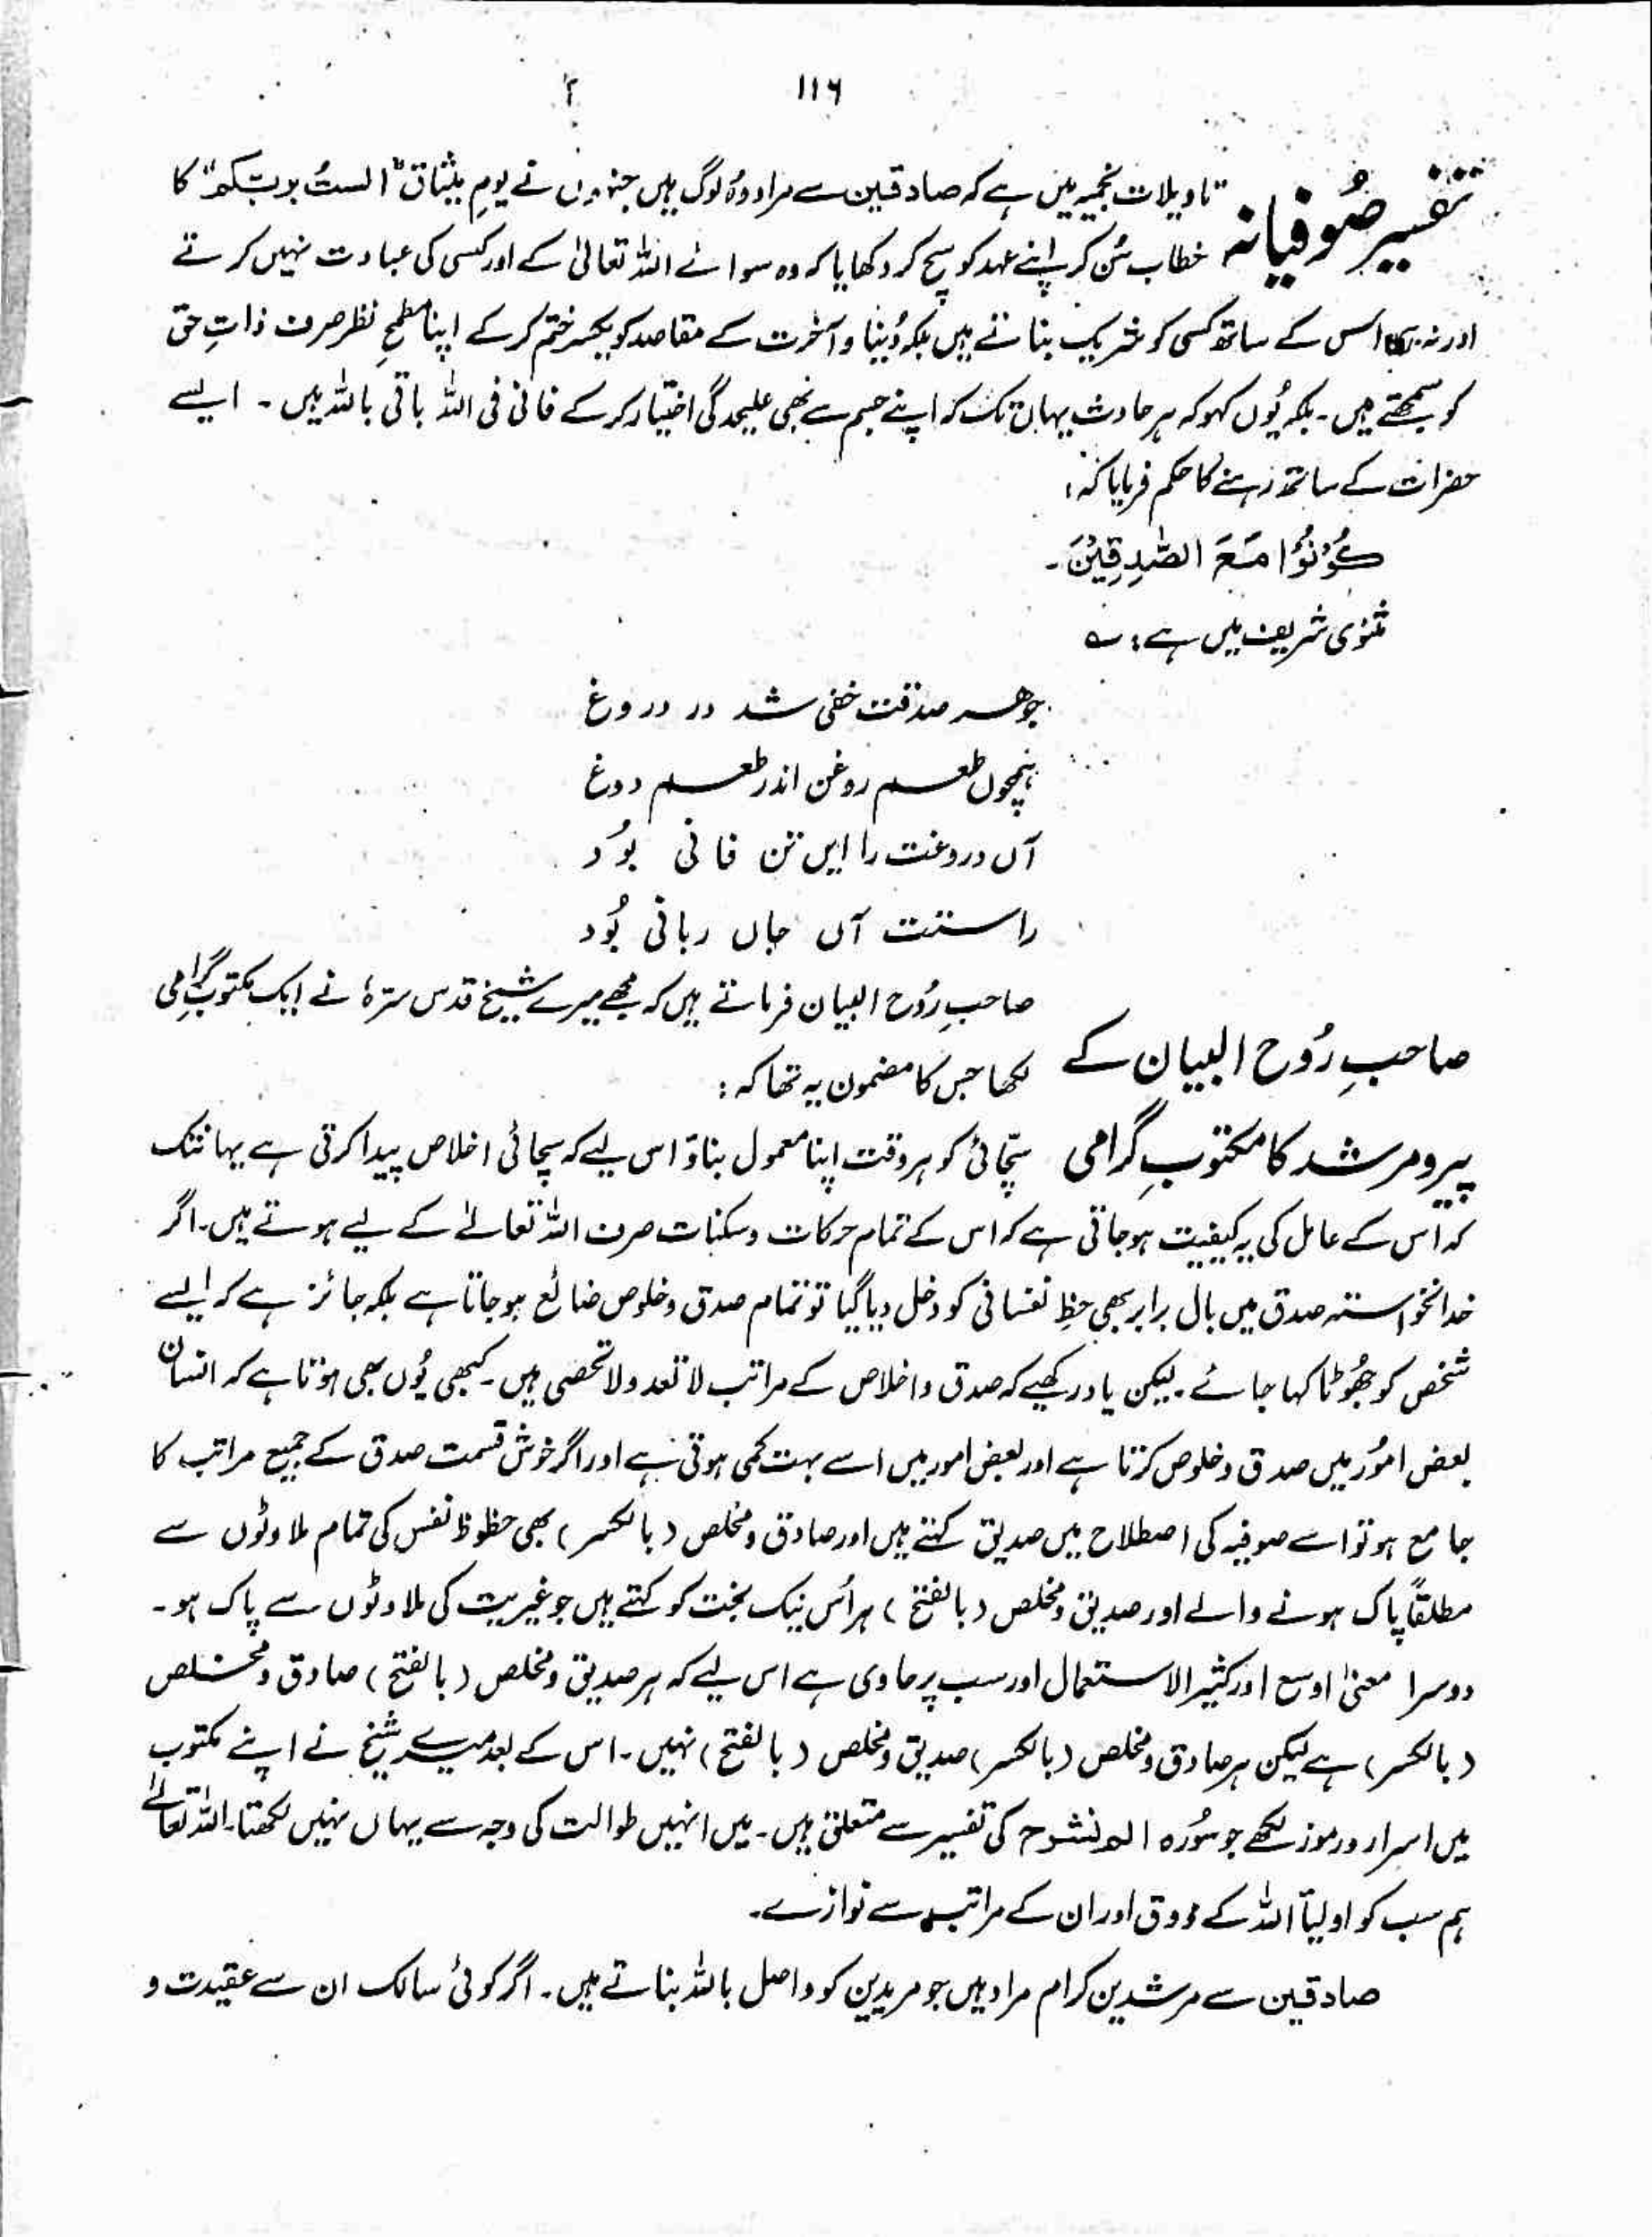 ۱۱۶
تفسیر صُوفیانہ
تاویلات نجمیہ میں ہے کہ صادقین سے مراد وُہ لوگ ہیں جنہوں نے یومِ میثاق "الستُ بربّکم" کا
خطاب سُن کر اپنے عہد کو سچ کر دکھایا کہ وہ سوائے اللہ تعالیٰ کے اور کسی کی عبادت نہیں کرتے
اور نہ ہی اس کے ساتھ کسی کو شریک بناتے ہیں بلکہ دُنیا و آخرت کے مقاصد کو یکسر ختم کر کے اپنا مطمحِ نظر صرف ذاتِ حق
کو سمجھتے ہیں۔ بلکہ یُوں کہو کہ ہر حادث یہاں تک کہ اپنے جسم سے بھی علیحدگی اختیار کر کے فانی فی اللہ باقی باللہ ہیں۔ ایسے
حضرات کے ساتھ رہنے کا حکم فرمایا کہ:
كُوْنُوْا مَعَ الصّٰدِقِيْنَ۔
مثنوی شریف میں ہے: ؎
جوھر صدقت خفی شد در دروغ
ہمچوں طعم روغن اندر طعم دوغ
آں دروغت را ایں تن فانی بوُد
راستت آں جاں ربانی بوُد
صاحبِ رُوح البیان کے
صاحبِ رُوح البیان فرماتے ہیں کہ مجھے میرے شیخ قدس سترہٗ نے ایک مکتوبِ گرامی
لکھا جس کا مضمون یہ تھا کہ:
پیرو مرشد کا مکتوبِ گرامی
سچّائی کو ہر وقت اپنا معمول بناؤ اس لیے کہ سچائی اخلاص پیدا کرتی ہے یہانتک
کہ اس کے عامل کی یہ کیفیت ہوجاتی ہے کہ اس کے تمام حرکات و سکنات صرف اللہ تعالےٰ کے لیے ہوتے ہیں۔ اگر
خدانخواستہ صدق میں بال برابر بھی حظِ نفسانی کو دخل دیا گیا تو تمام صدق و خلوص ضائع ہوجاتا ہے بلکہ جائز ہے کہ ایسے
شخص کو جھُوٹا کہا جائے۔ لیکن یاد رکھیے کہ صدق و اخلاص کے مراتب لا تعد و لا تحصی ہیں۔ کبھی یُوں بھی ہوتا ہے کہ انسان
بعض امُور میں صدق و خلوص کرتا ہے اور بعض امور میں اسے بہت کمی ہوتی ہے اور اگر خوش قسمت صدق کے جمیع مراتب کا
جامع ہو تو اسے صوفیہ کی اصطلاح میں صدیق کہتے ہیں اور صادق و مخلص (بالکسر) بھی حظوظِ نفس کی تمام ملاوٹوں سے
مطلقاً پاک ہونے والے اور صدیق و مخلص (بالفتح) ہر اُس نیک بخت کو کہتے ہیں جو غیریت کی ملاوٹوں سے پاک ہو۔
دوسرا معنیٰ اوسع اور کثیر الاستعمال اور سب پر حاوی ہے اس لیے کہ ہر صدیق و مخلص (بالفتح) صادق و مخلص
(بالکسر) ہے لیکن ہر صادق و مخلص (بالکسر) صدیق و مخلص (بالفتح) نہیں۔ اس کے بعد میرے شیخ نے اپنے مکتوب
میں اسرار و رموز لکھے جو سُورہ الم نشرح کی تفسیر سے متعلق ہیں۔ میں انہیں طوالت کی وجہ سے یہاں نہیں لکھتا۔ اللہ تعالےٰ
ہم سب کو اولیاَ اللہ کے ذوق اور ان کے مراتب سے نوازے۔
صادقین سے مرشدین کرام مراد ہیں جو مریدین کو واصل باللہ بناتے ہیں۔ اگر کوئی سالک ان سے عقیدت و